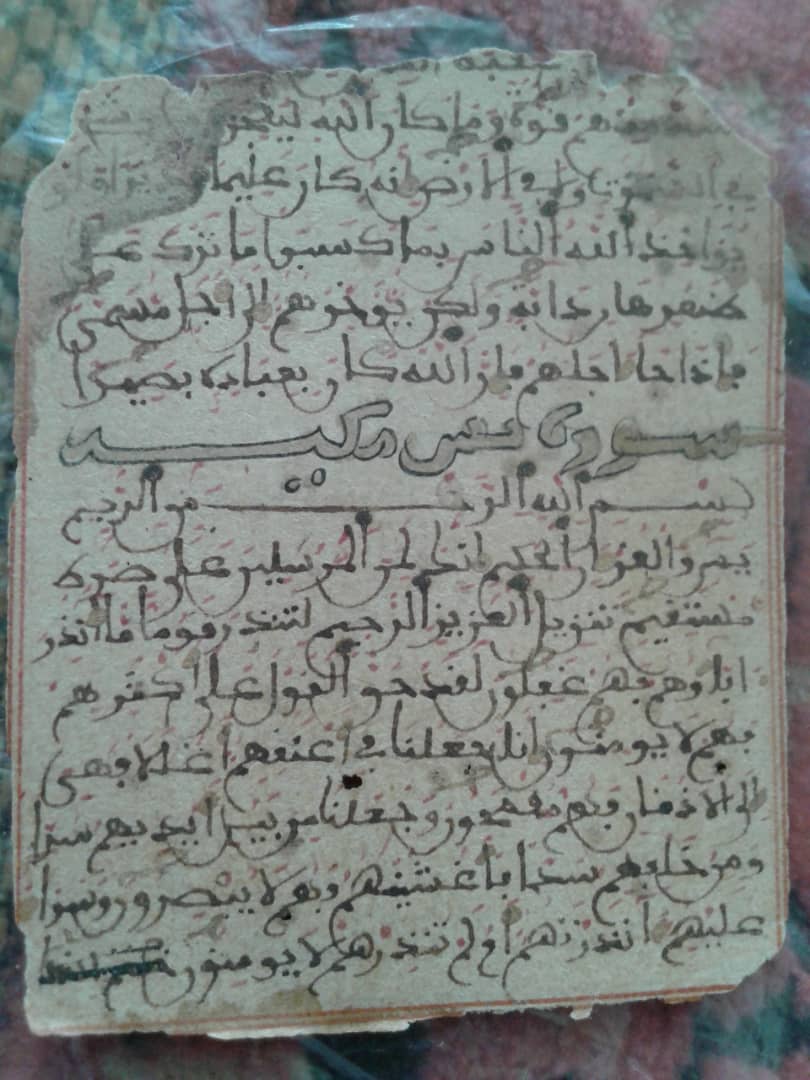 عقبة
منهم قوة وما كان الله ليعجز
في السموت ولا في الارض انه كان عليما
يواخذ الله الناس بما كسبوا ما ترك على
ظهرها من دابة ولكن يوخرهم الى اجل مسمى
فاذا جا اجلهم فان الله كان بعباده بصيرا
سورة يس مكية
بسم الله الرحمن الرحيم
يس والقران الحكيم انك لمن المرسلين على صرط
مستقيم تنزيل العزيز الرحيم لتنذر قوما ما انذر
اباوهم فهم غفلون لقد حق القول على اكثرهم
فهم لا يومنون انا جعلنا في اعنقهم اغللا فهي
الى الاذقان فهم مقمحون وجعلنا من بين ايديهم سدا
ومن خلفهم سدا فاغشينهم فهم لا يبصرون وسوا
عليهم انذرتهم ام لم تنذرهم لا يومنون